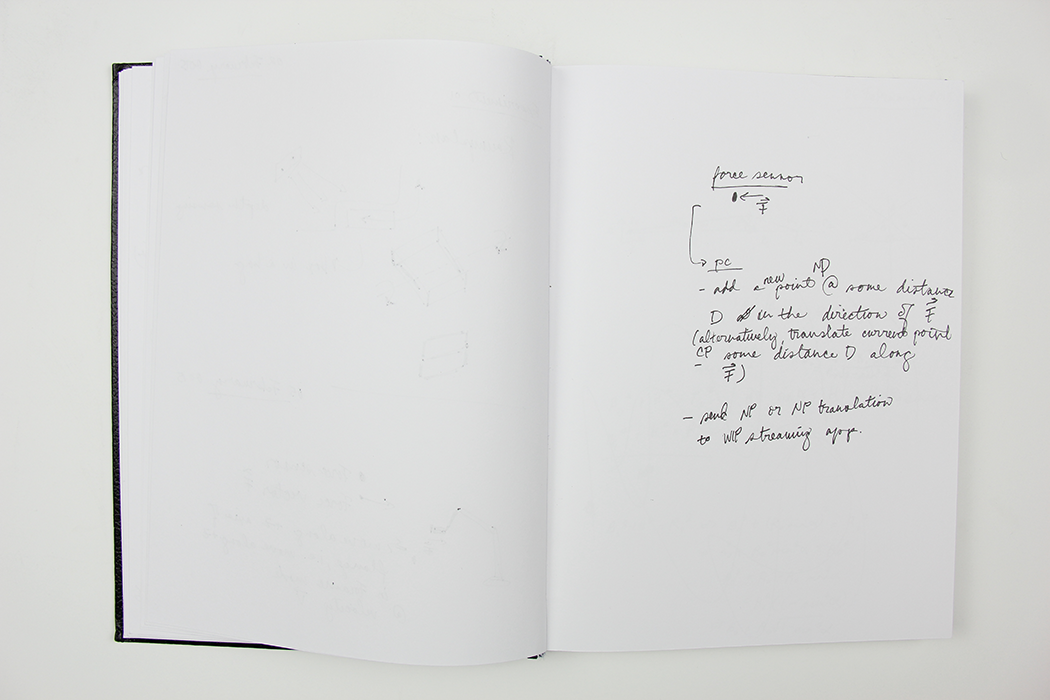 force sensor
F
pc
- add a new point NP @ some distance
D in the direction of F
(alternatively, translate current point
CP some distance D along
F)
- send NP or NP translation
to WIP streaming app.